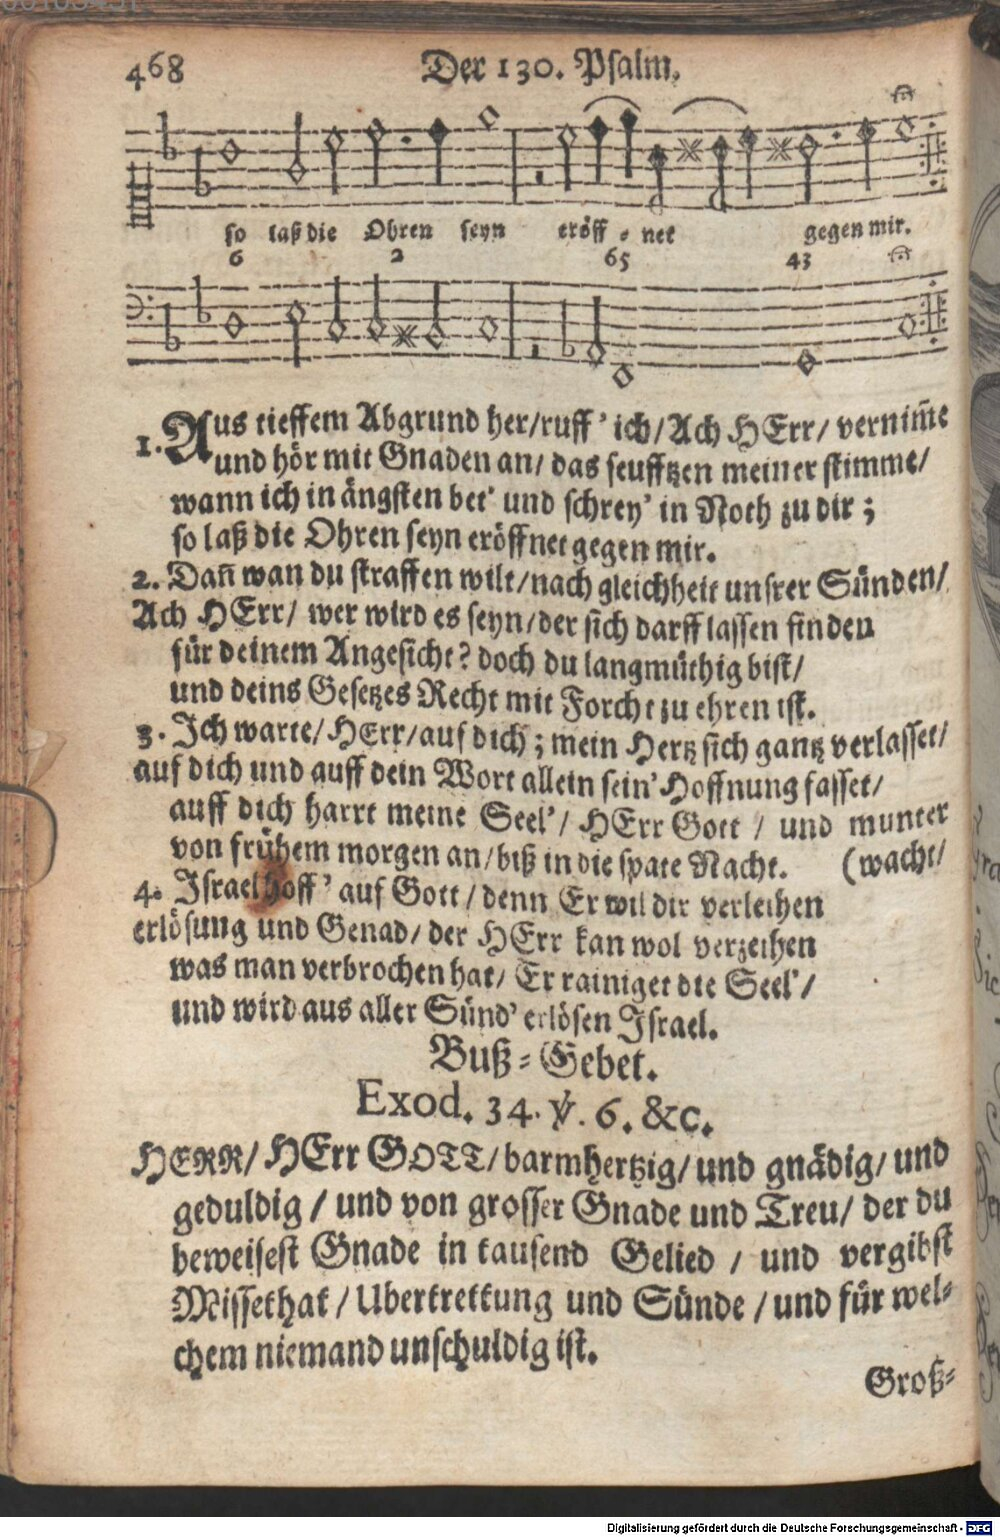 468 Der 130. Psalm.
so laß die Ohren seyn eröff - net gegen mir.
6 2 65 43
1. Aus tieffem Abgrund her/ruff' ich/Ach HErr/ vernim̃e
und hör mit Gnaden an/ das seufftzen meiner stimme/
wann ich in ängsten bet' und schrey' in Noth zu dir;
so laß die Ohren seyn eröffnet gegen mir.
2. Dañ wan du straffen wilt/nach gleichheit unsrer Sünden/
Ach HErr/ wer wird es seyn/der sich darff lassen finden
für deinem Angesicht? doch du langmüthig bist/
und deins Gesetzes Recht mit Forcht zu ehren ist.
3. Ich warte/HErr/auf dich; mein Hertz sich gantz verlasset/
auf dich und auff dein Wort allein sein' Hoffnung fasset/
auff dich harrt meine Seel'/ HErr Gott / und munter
von frühem morgen an/biß in die spate Nacht. (wacht/
4. Israel hoff' auf Gott/denn Er wil dir verleihen
erlösung und Genad/der HErr kan wol verzeihen
was man verbrochen hat/ Er rainiget die Seel'/
und wird aus aller Sünd' erlösen Israel.
Buß-Gebet.
Exod. 34. ℣. 6. &c.
HERR/HErr GOTT/barmhertzig/und gnädig/und
geduldig/und von grosser Gnade und Treu/der du
beweisest Gnade in tausend Gelied / und vergibst
Missethat/Ubertrettung und Sünde/und für wel-
chem niemand unschuldig ist.
Groß-
Digitalisierung gefördert durch die Deutsche Forschungsgemeinschaft - DFG